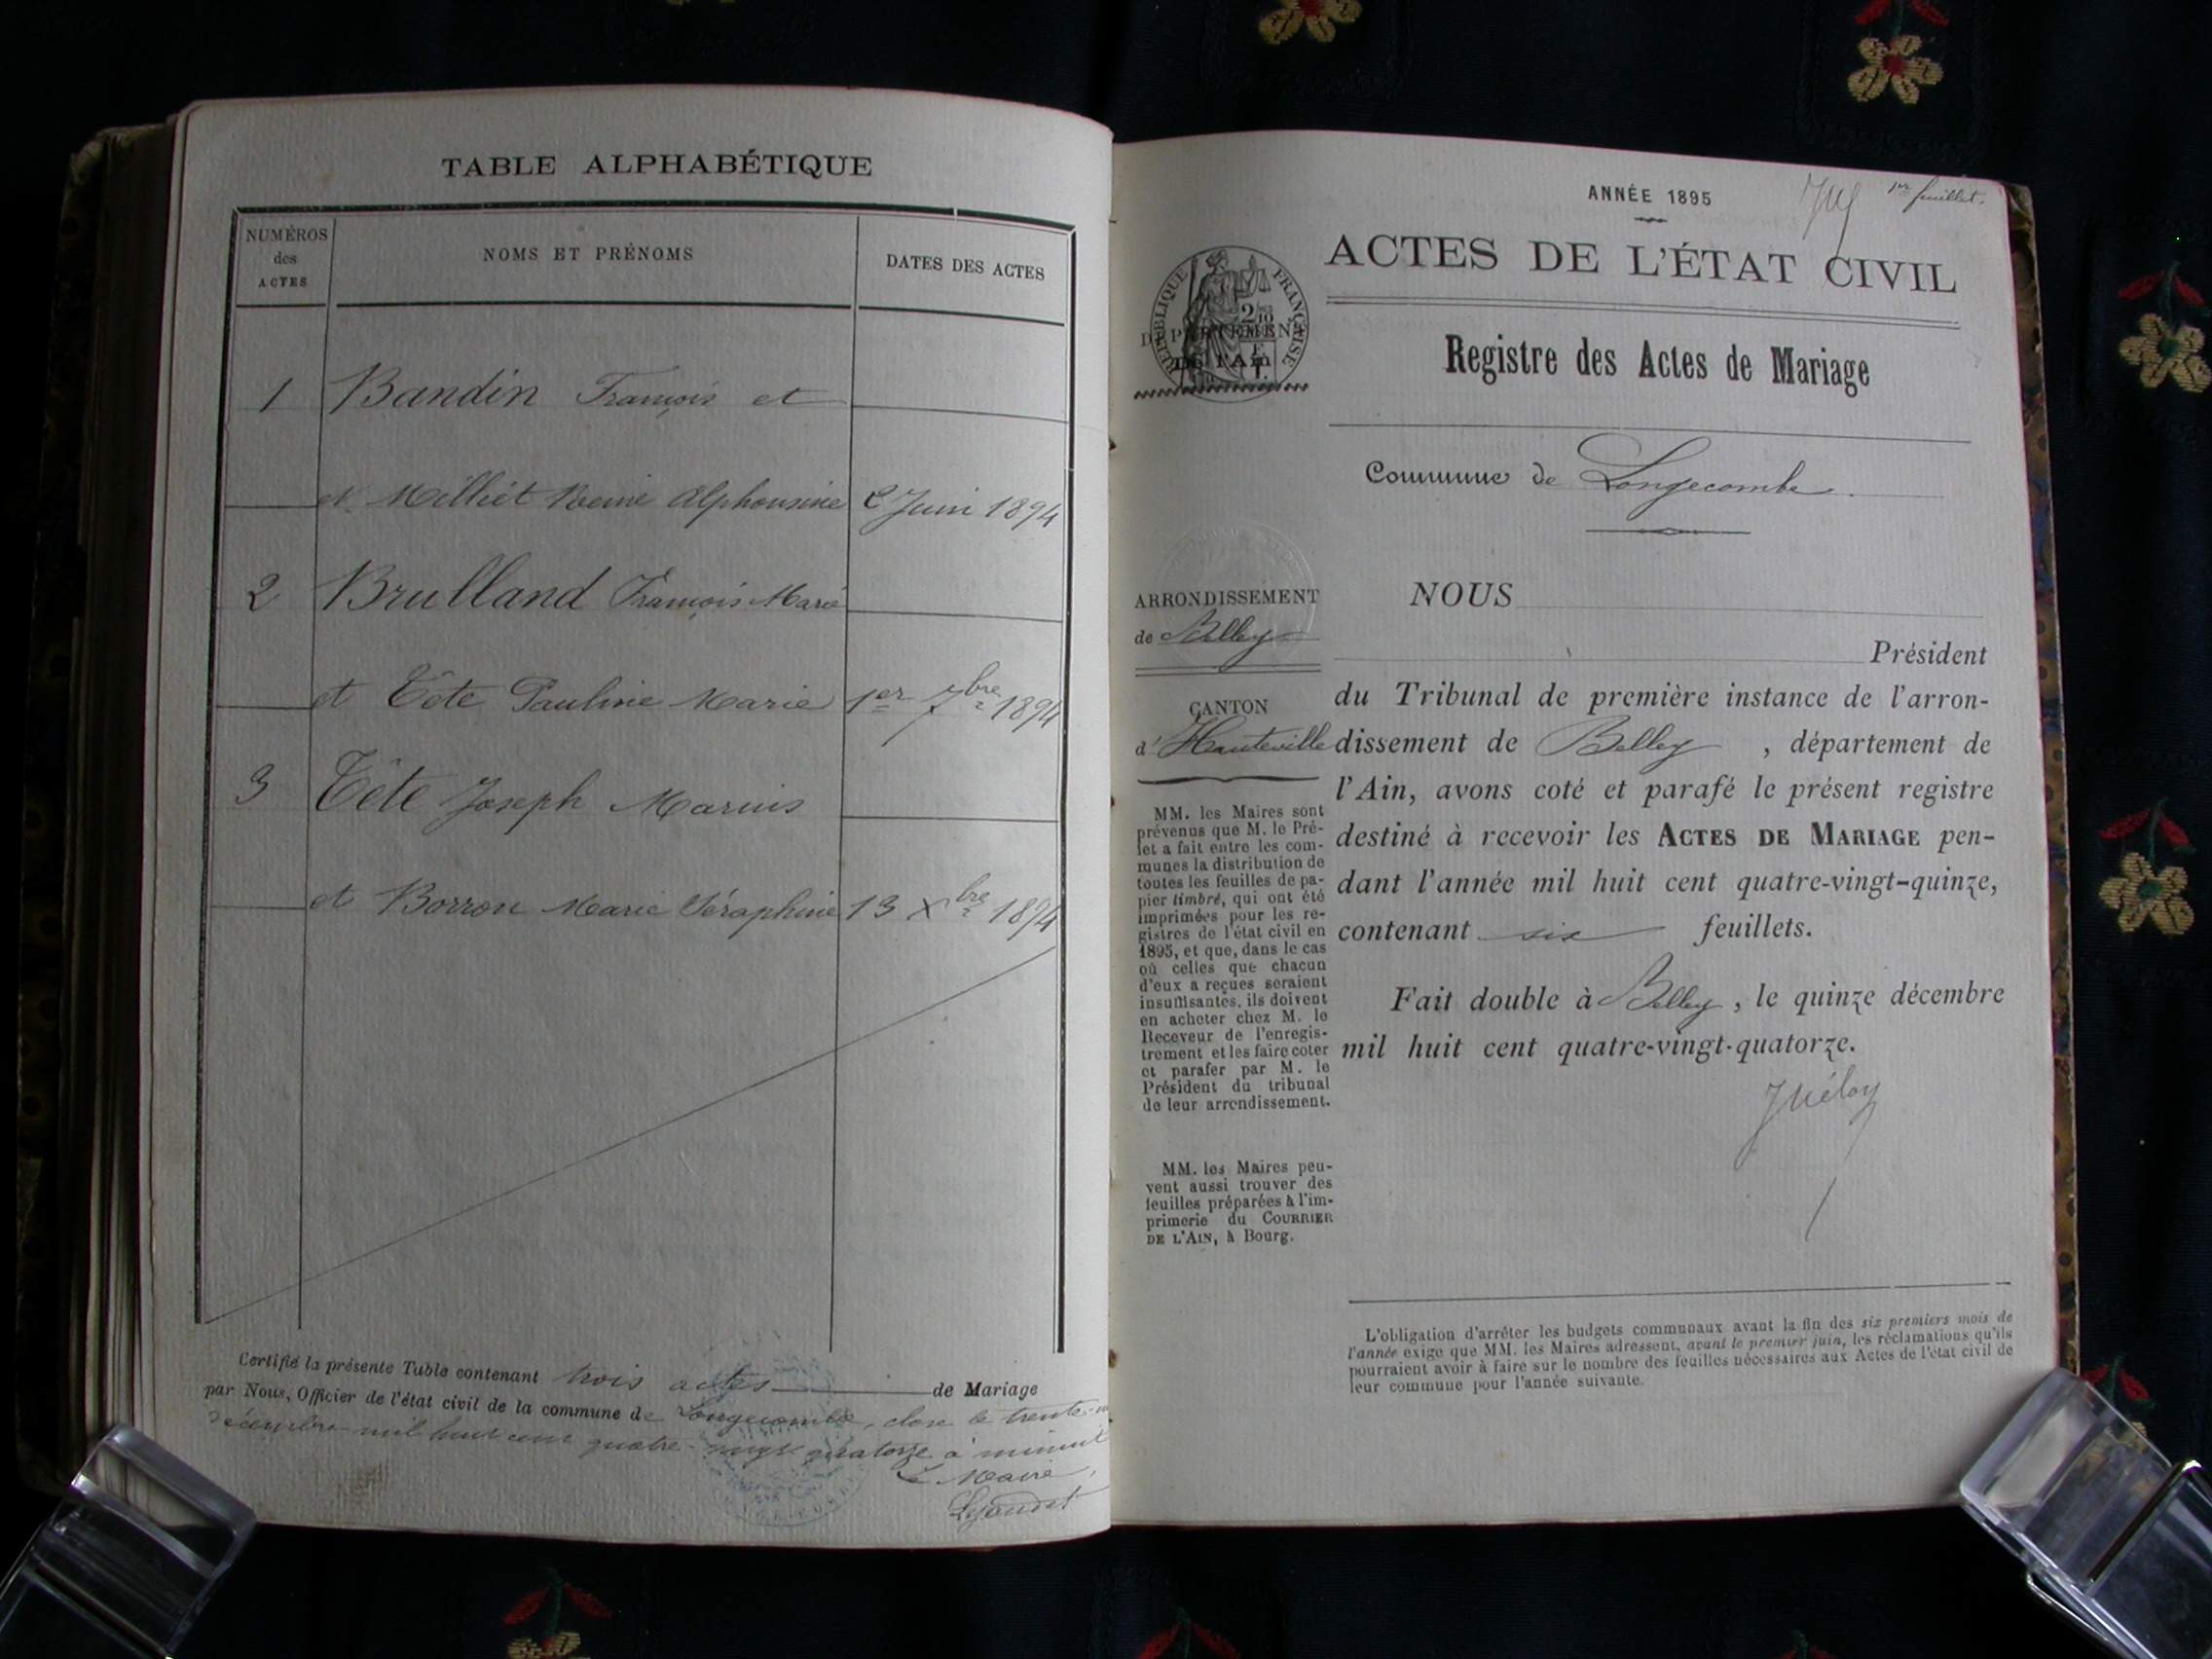 TABLE ALPHABÉTIQUE
NUMÉROS des ACTES
NOMS ET PRÉNOMS
DATES DES ACTES
1 Bandin François et
et Milliet Reine Alphonsine 2 Juin 1894
2 Brulland François Marie
et Tête Pauline Marie 1er 7bre 1894
3 Tête Joseph Marius
et Borron Marie Séraphine 13 Xbre 1894
Certifié la présente Table contenant trois actes de Mariage
par Nous, Officier de l'état civil de la commune de Longecombe, close le trente-un
décembre mil huit cent quatre-vingt quatorze à minuit
Le Maire,
1er feuillet.
ANNÉE 1895
ACTES DE L'ÉTAT CIVIL
RÉPUBLIQUE FRANÇAISE
2/10
DÉPARTEMENT
DE L'AIN
Registre des Actes de Mariage
Commune de Longecombe.
ARRONDISSEMENT
de Belley
CANTON
d'Hauteville
MM. les Maires sont
prévenus que M. le Pré-
fet a fait entre les com-
munes la distribution de
toutes les feuilles de pa-
pier timbré, qui ont été
imprimées pour les re-
gistres de l'état civil en
1895, et que, dans le cas
où celles que chacun
d'eux a reçues seraient
insuffisantes, ils doivent
en acheter chez M. le
Receveur de l'enregis-
trement et les faire coter
et parafer par M. le
Président du tribunal
de leur arrondissement.
MM. les Maires peu-
vent aussi trouver des
feuilles préparées à l'im-
primerie du COURRIER
DE L'AIN, à Bourg.
NOUS
Président
du Tribunal de première instance de l'arron-
dissement de Belley, département de
l'Ain, avons coté et parafé le présent registre
destiné à recevoir les ACTES DE MARIAGE pen-
dant l'année mil huit cent quatre-vingt-quinze,
contenant six feuillets.
Fait double à Belley, le quinze décembre
mil huit cent quatre-vingt-quatorze.
L'obligation d'arrêter les budgets communaux avant la fin des six premiers mois de
l'année exige que MM. les Maires adressent, avant le premier juin, les réclamations qu'ils
pourraient avoir à faire sur le nombre des feuilles nécessaires aux Actes de l'état civil de
leur commune pour l'année suivante.